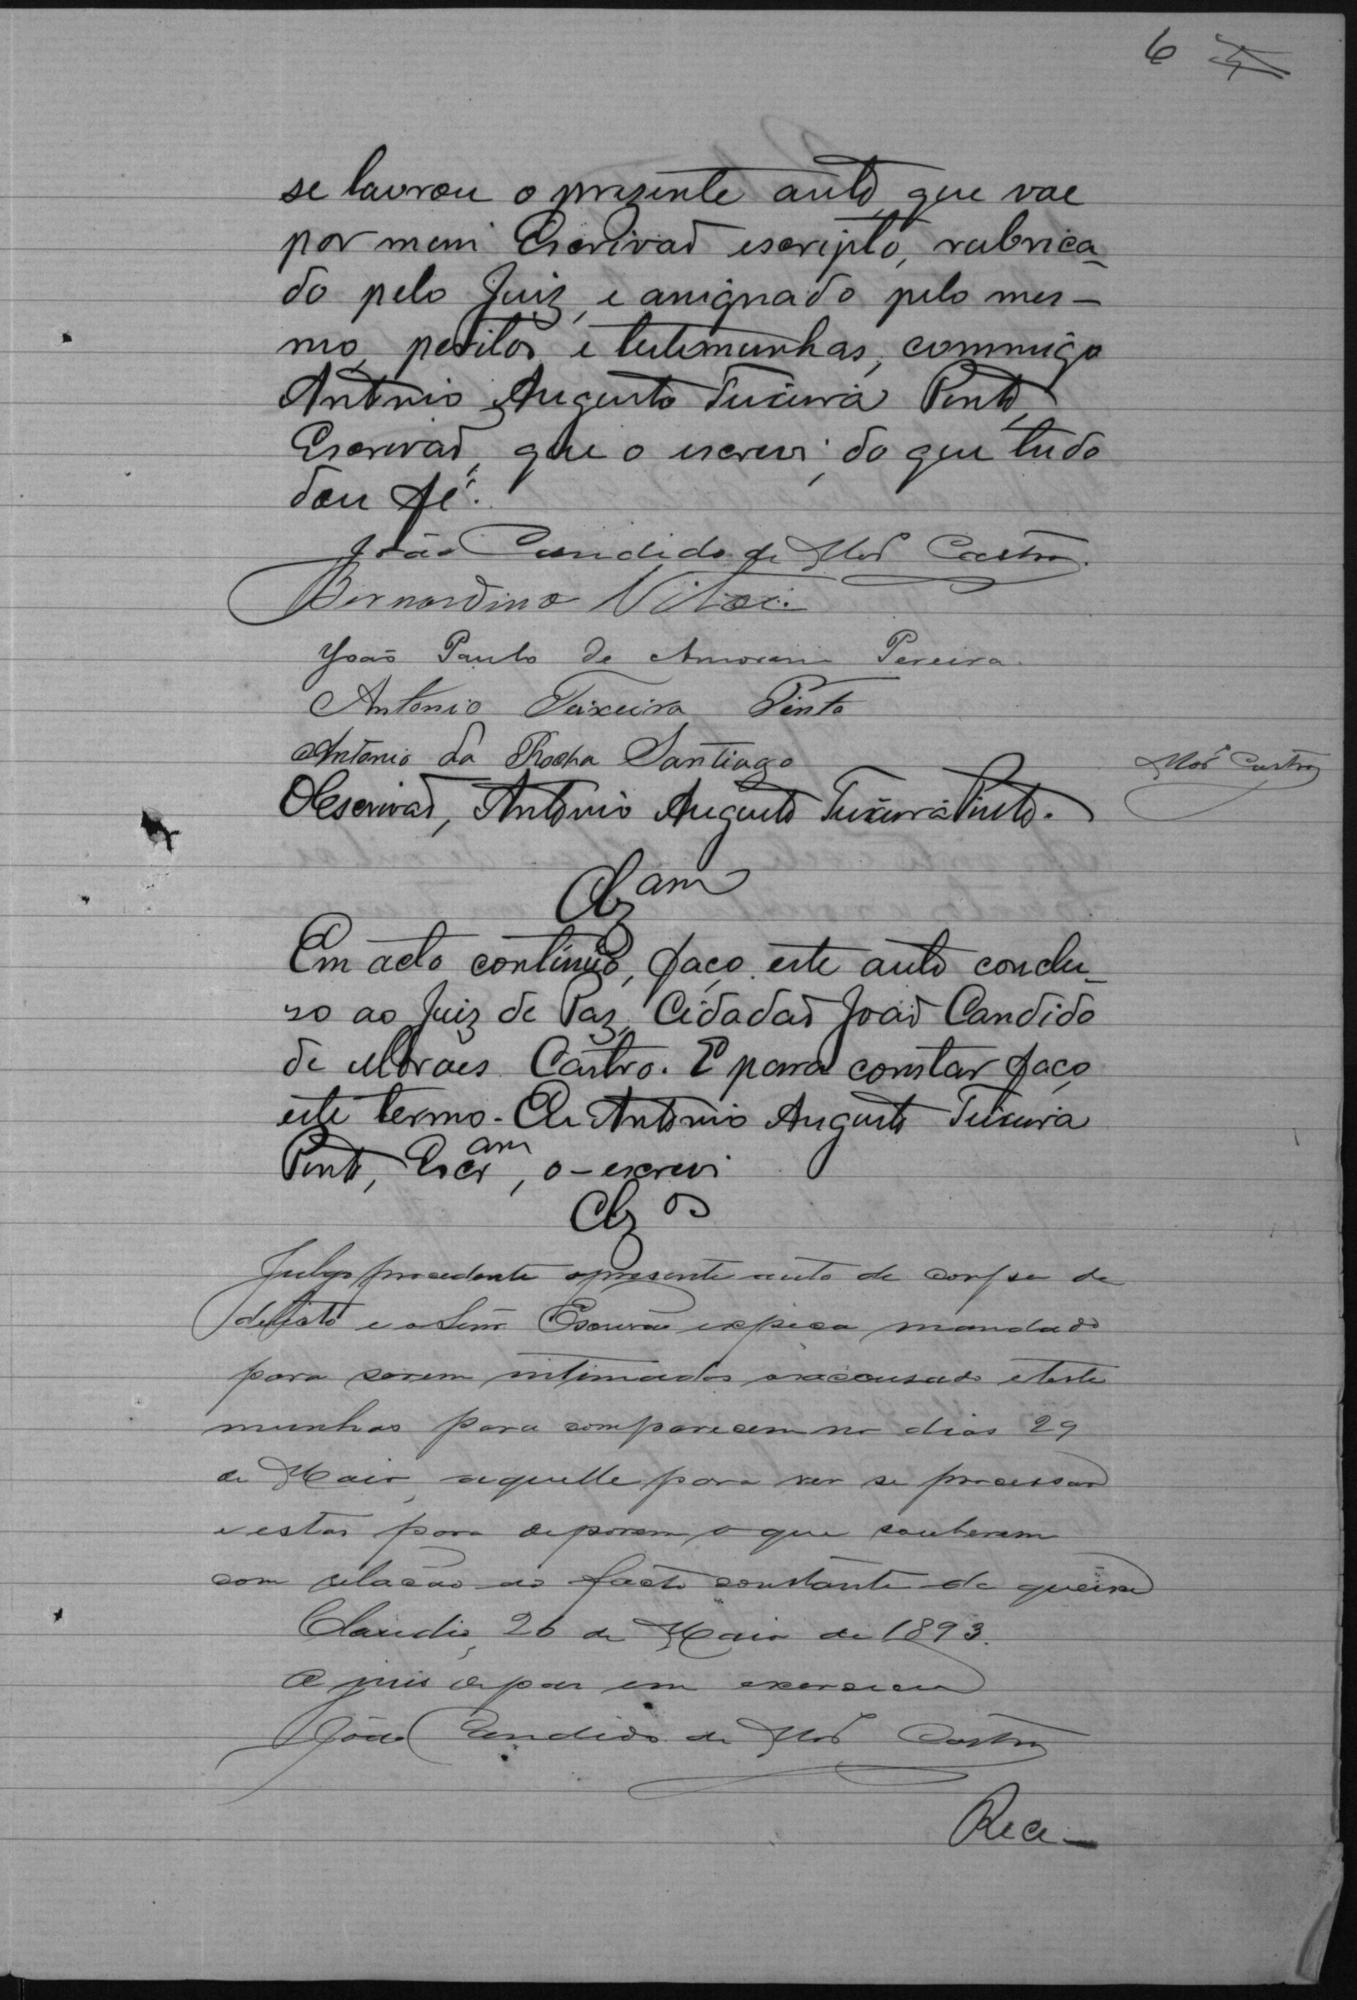 6
se lavrou o prezente auto que vae
por mim Escrivaõ escripto, rubrica-
do pelo Juiz, e assignado pelo mes-
mo, peritos e testemunhas, commigo
Antonio Augusto Teixeira Pinto,
Escrivaõ, que o escrevi; do que tudo
dou fé.
João Candido de Mor.s Castro.
Bernardino
João Paulo de Amorim Pereira
Antonio Teixeira Pinto
Antonio da Rocha Santiago
Mor.s Castro
O Escrivaõ, Antonio Augusto Teixeira Pinto.
Clzam
Em acto continuo, faço este auto conclu-
zo ao Juiz de Paz, Cidadaõ Joaõ Candido
de Moraes Castro. E para constar faço
este termo. Eu Antonio Augusto Teixeira
Pinto, Escram, o-escrevi
Clzos
Julgo procedente o presente auto de corpo de
delicto e o Senr. Escrivão expeça mandado
para serem intimados o accusado e teste
munhas para comparecem no dias 29
de Maio, aquelle para ver se processar
e estas para deporem o que souberem
com relação ao facto constante da queixa
Claudio, 26 de Maio de 1893.
O juis de pas em exercicio
João Candido de Mor.s Castro
Rece-